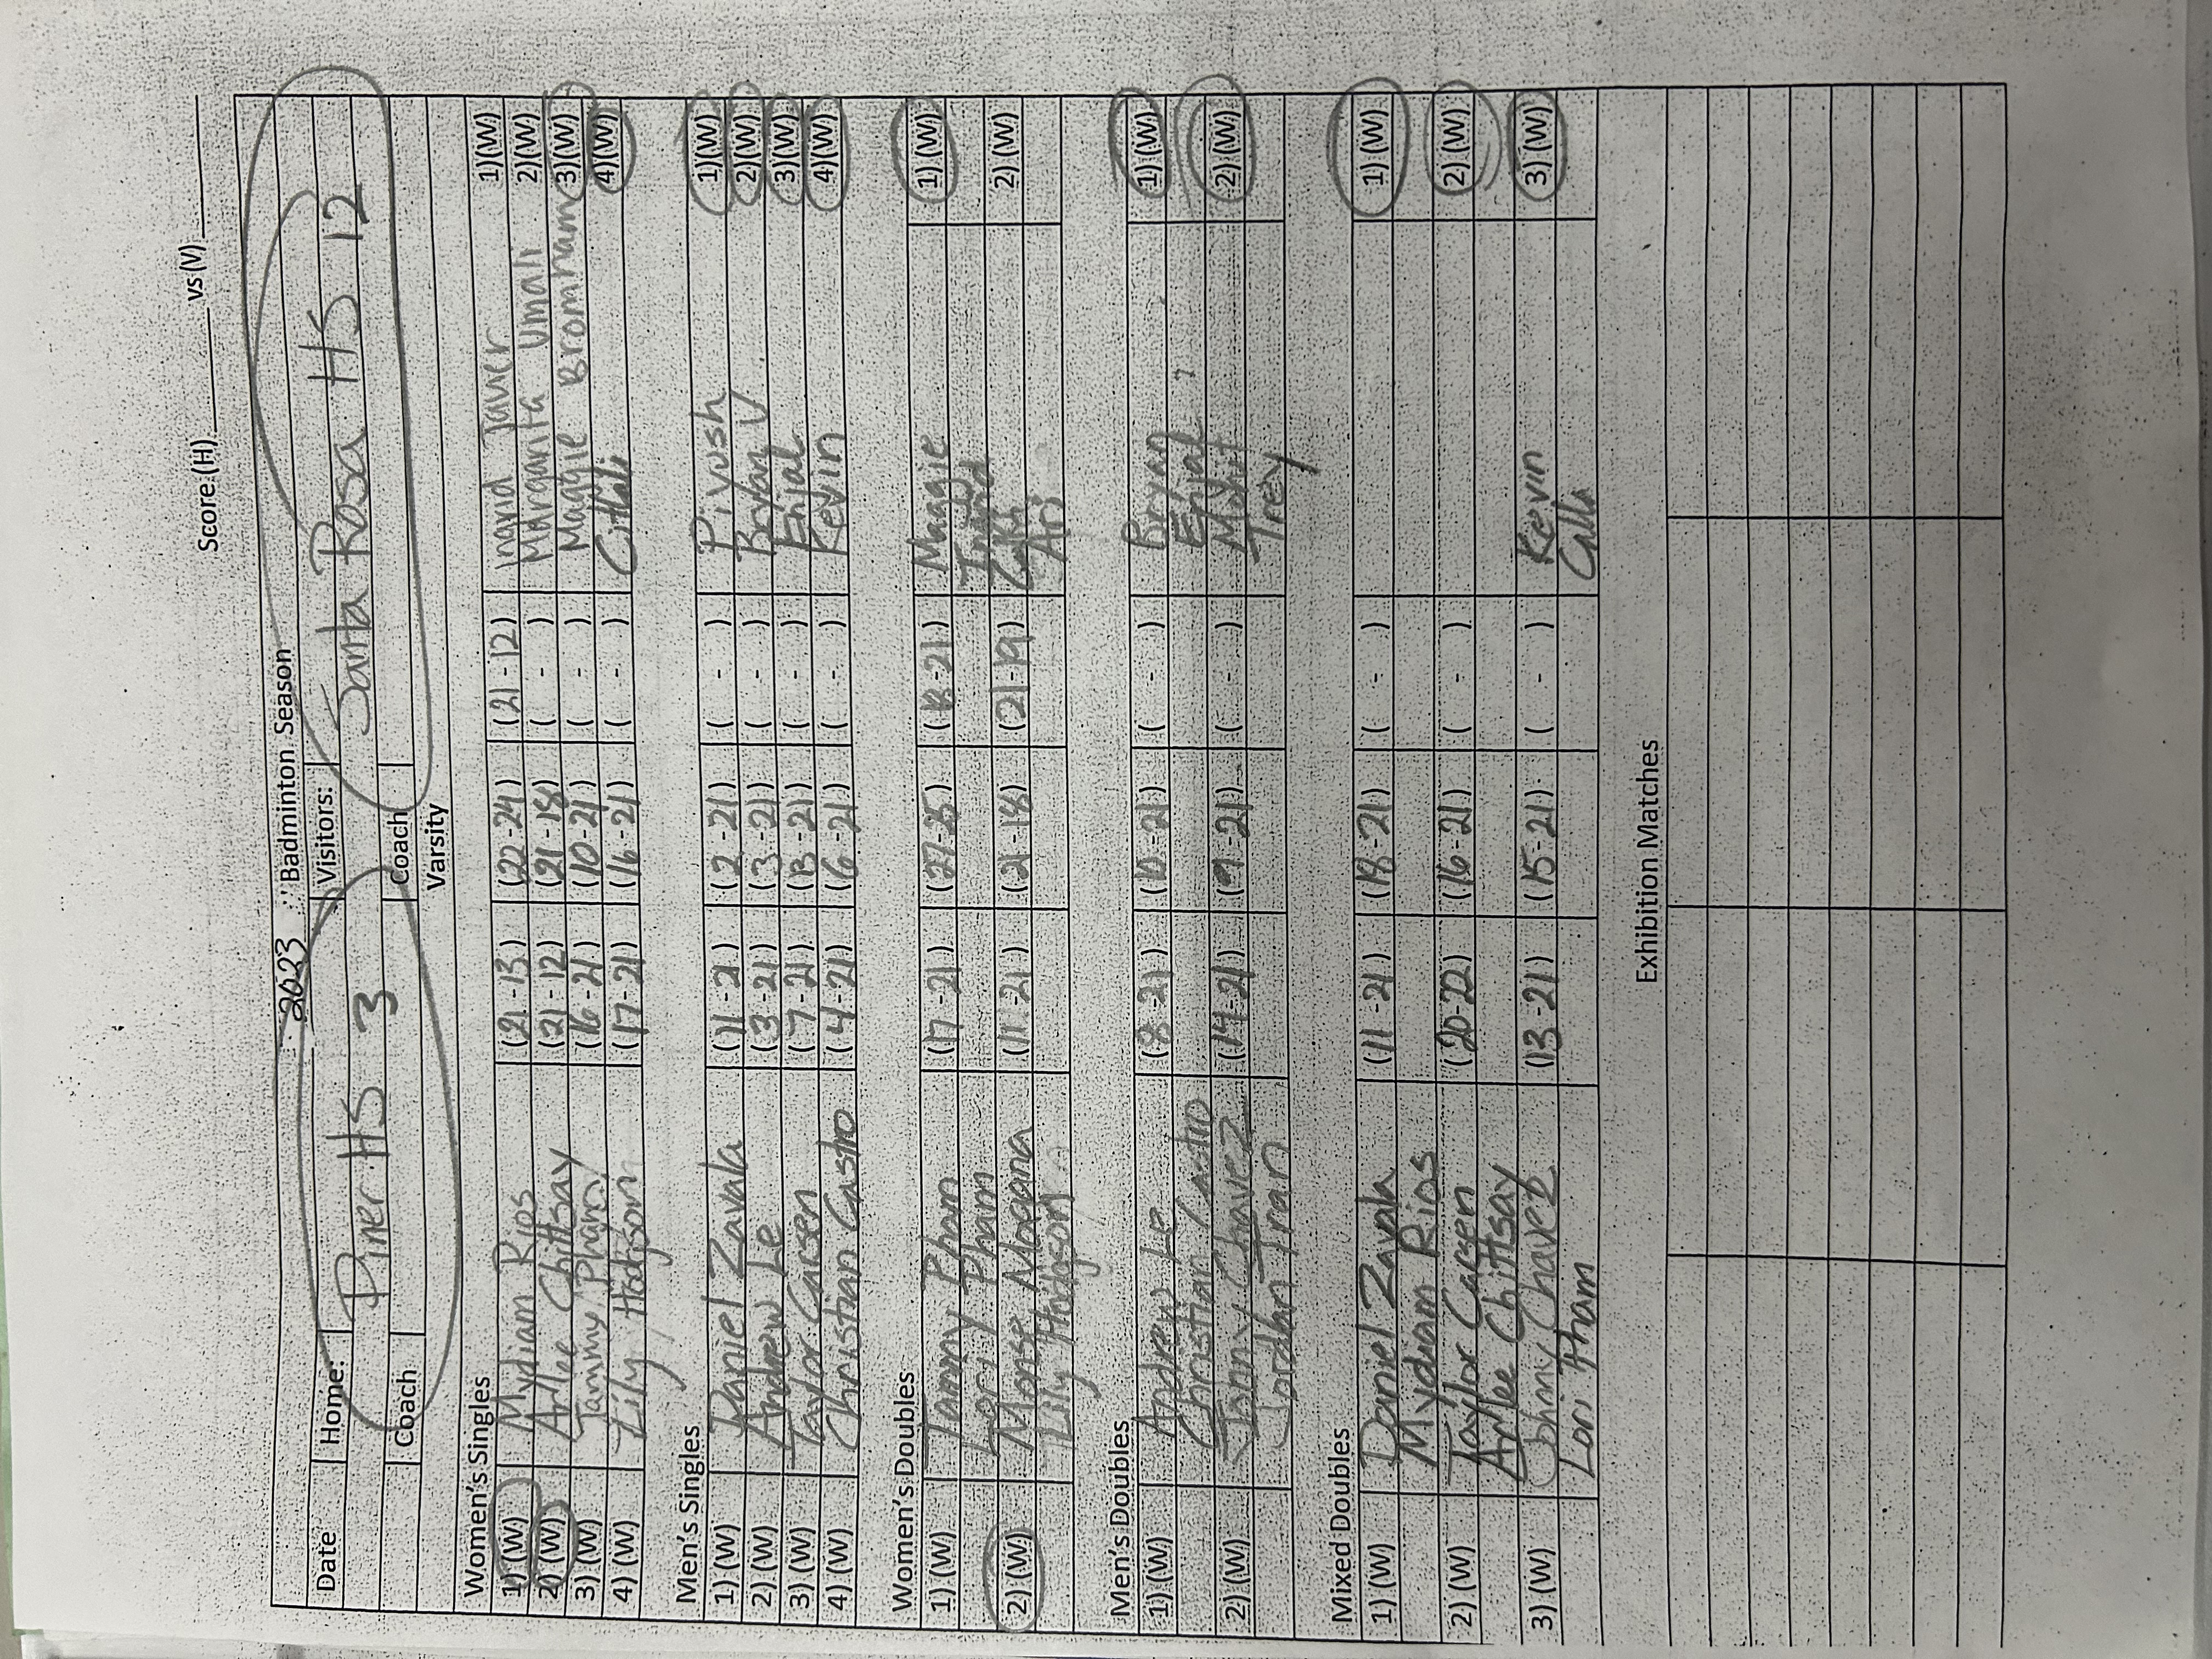 Score (H)______ vs (V)______
2023 Badminton Season
Date Home: Visitors:
Piner HS 3 Santa Rosa HS 12
Coach Coach
Varsity
Women's Singles
1) (W) Mydiam Rios (21-13) (22-24) (21-12) Ingrid 1)(W)
2) (W) Arlee Chittsay (21-12) (21-18) ( - ) Margarita Umali 2)(W)
3) (W) Tammy Pham (16-21) (10-21) ( - ) Maggie Bromham 3)(W)
4) (W) Lily Hodgson (17-21) (16-21) ( - ) Citlali 4)(W)
Men's Singles
1) (W) Daniel Zavala (11-21) (2-21) ( - ) Piyush 1)(W)
2) (W) Andrew Le (3-21) (3-21) ( - ) Bryan V. 2)(W)
3) (W) Taylor Carsen (7-21) (13-21) ( - ) Enjal 3)(W)
4) (W) Christian Castro (4-21) (6-21) ( - ) Kevin 4)(W)
Women's Doubles
1) (W) Tammy Pham (17-21) (27-25) (18-21) Maggie 1) (W)
Lori Pham Ingrid
2) (W) Monse Magana (11-21) (21-18) (21-19) 2) (W)
Lily Hodgson Ari
Men's Doubles
1) (W) Andrew Le (8-21) (10-21) ( - ) Bryan 1) (W)
Christian Castro Enjal
2) (W) Johnny Chavez (14-21) (9-21) ( - ) Mohit 2) (W)
Jordan Tran Trey
Mixed Doubles
1) (W) Daniel Zavala (11-21) (18-21) ( - ) 1) (W)
Mydiam Rios
2) (W) Taylor Carsen (20-22) (16-21) ( - ) 2) (W)
Arlee Chittsay
3) (W) Johnny Chavez (13-21) (15-21) ( - ) Kevin 3) (W)
Lori Pham Calla
Exhibition Matches